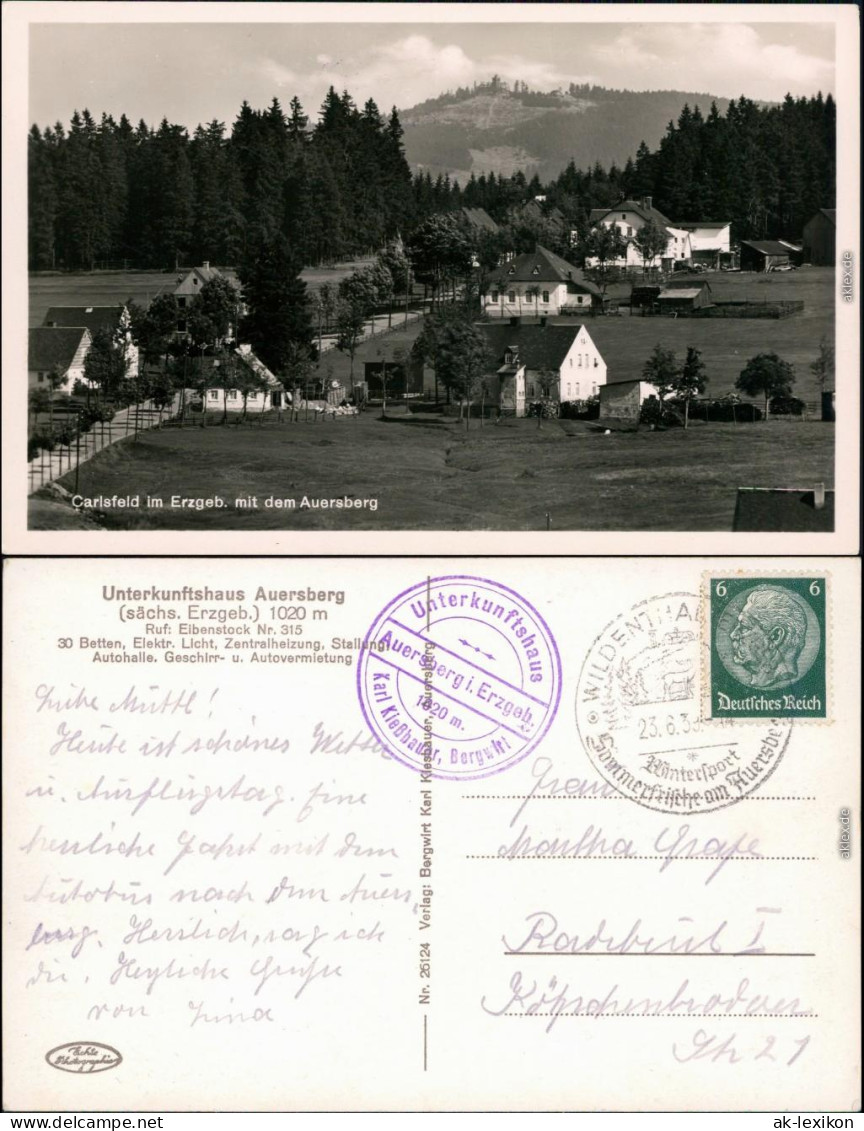 Carlsfeld im Erzgeb. mit dem Auersberg
Unterkunftshaus Auersberg
(sächs. Erzgeb.) 1020 m
Ruf: Eibenstock Nr. 315
30 Betten, Elektr. Licht, Zentralheizung, Stallung,
Autohalle. Geschirr- u. Autovermietung
Liebe Muttl!
Heute ist schönes Wetter
u. Ausflugstag. Eine
herrliche Fahrt mit dem
Autobus nach dem Auers-
berg. Herrlich, sag ich
dir. Herzliche Grüße
von
Echte
Photographie
Nr. 26124 Verlag: Bergwirt Karl Kiesbauer, Auersberg
Unterkunftshaus
Auersberg i. Erzgeb.
1020 m.
Karl Kießbauer, Bergwirt
WILDENTHAL
23.6.
Wintersport
Sommerfrische am Auersberg
6 6
Deutsches Reich
Frau
Martha Grafe
Radebeul I
Köpschenbrodaer
Str 21
akpool.de
ak-lexikon.de
ak-lexikon.de
ak-lexikon.com